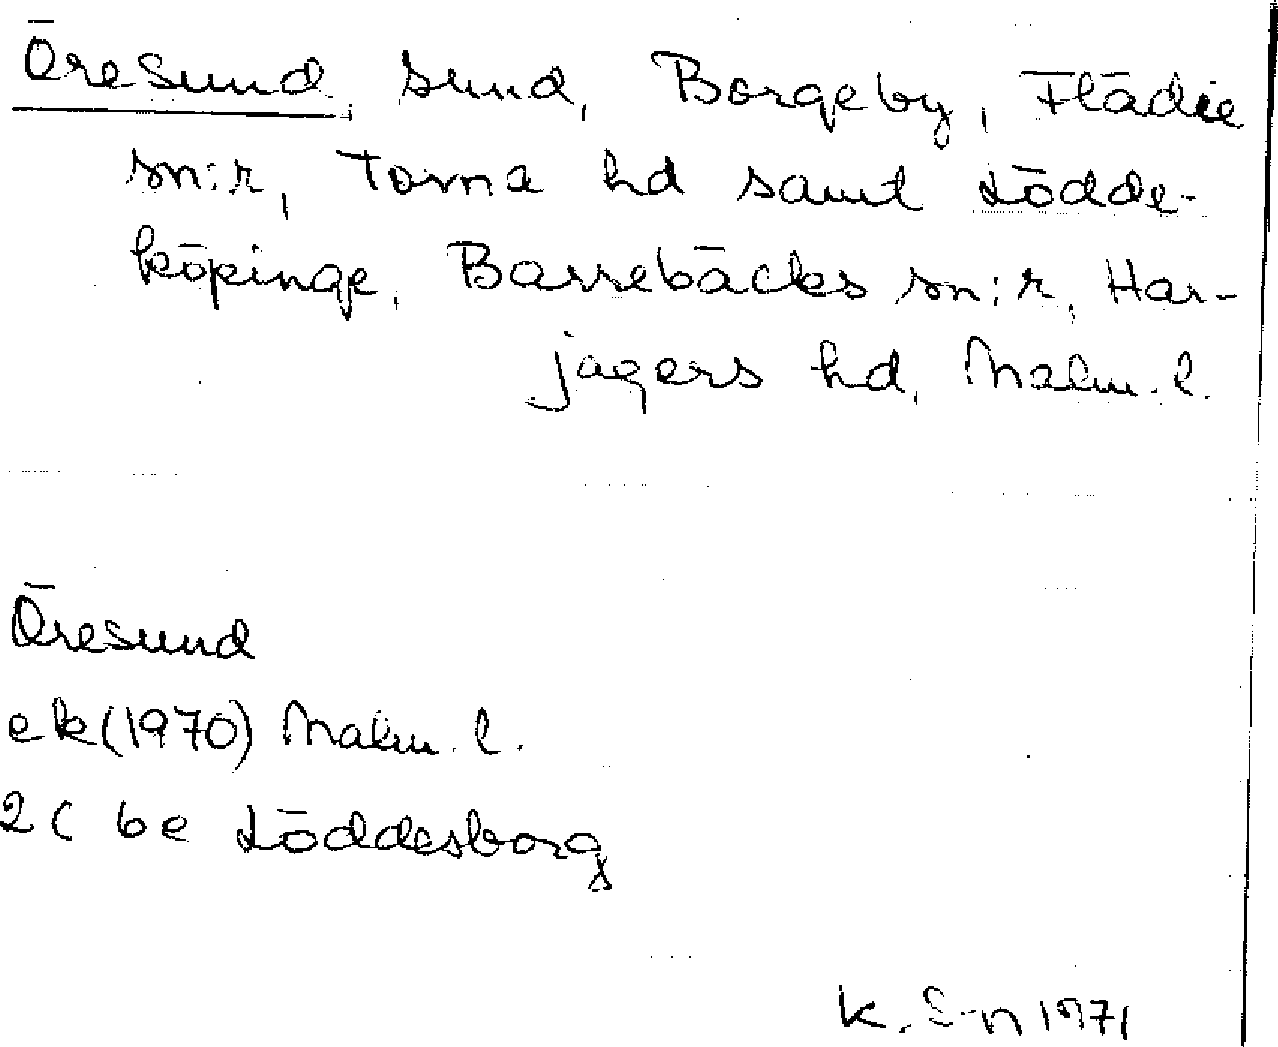 Öresund, sund, Borgeby, Flädie
sn:r, Torna hd samt Lödde-
köpinge, Barsebäcks sn:r, Har-
jagers hd, Malm. l.
Öresund
ek (1970) Malm. l.
2C 6e Löddesborg
K. S-n 1971